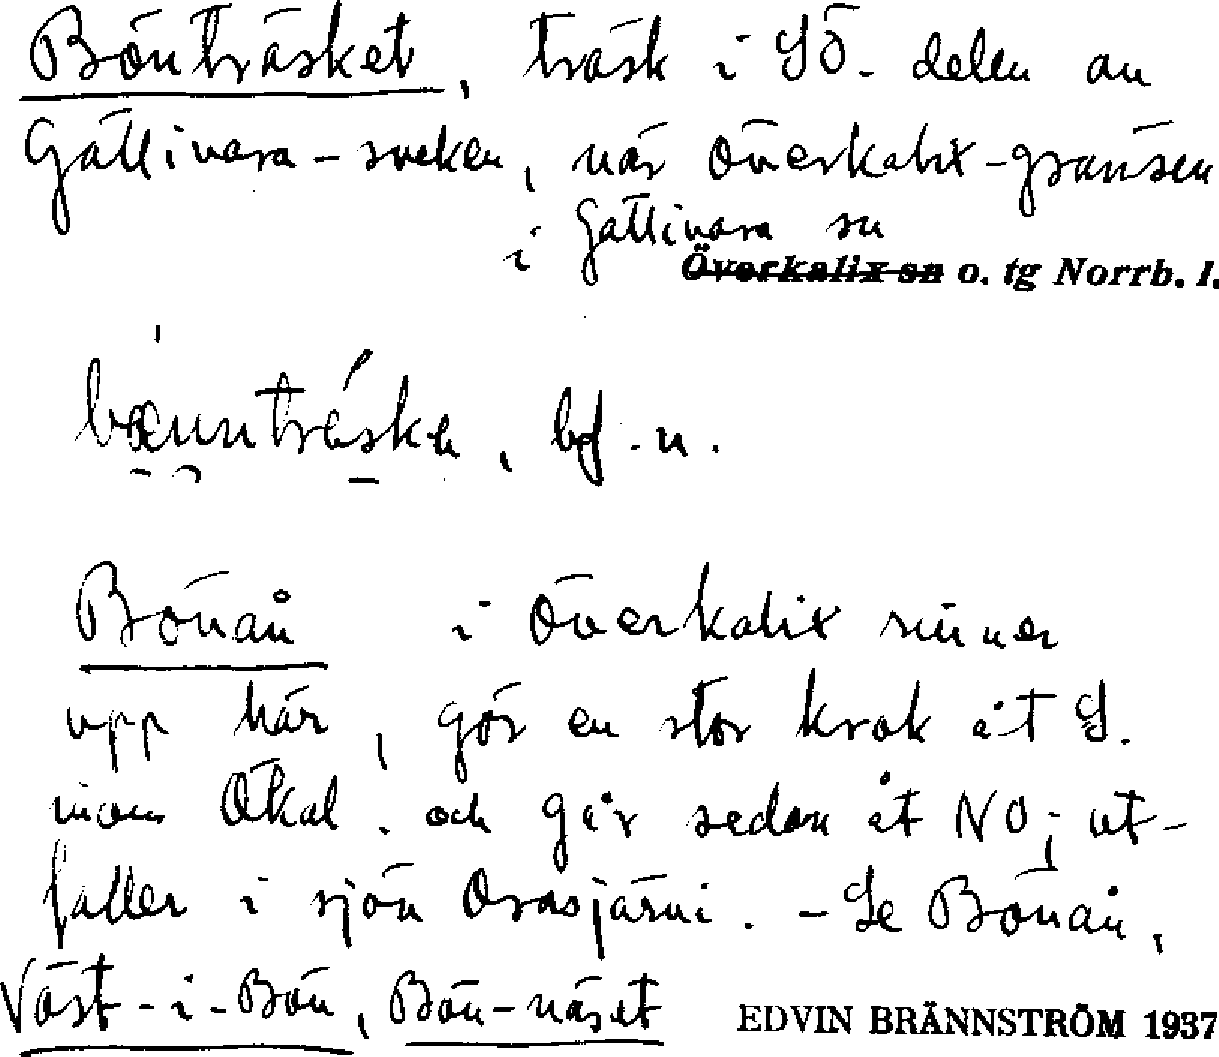 Bönträsket, träsk i SÖ. delen av
Gällivara-socken, när Överkalix-gränsen
i Gällivara sn
Överkalix sn o. tg Norrb. l.
bœnntrǽska, bf. n.
Bönån i Överkalix rinner
upp här, gör en stor krok åt S.
inom Ökal. och går sedan åt NO; ut-
faller i sjön Orasjärvi. - Se Bönån,
Väst-i-Bön, Bön-näset
EDVIN BRÄNNSTRÖM 1937